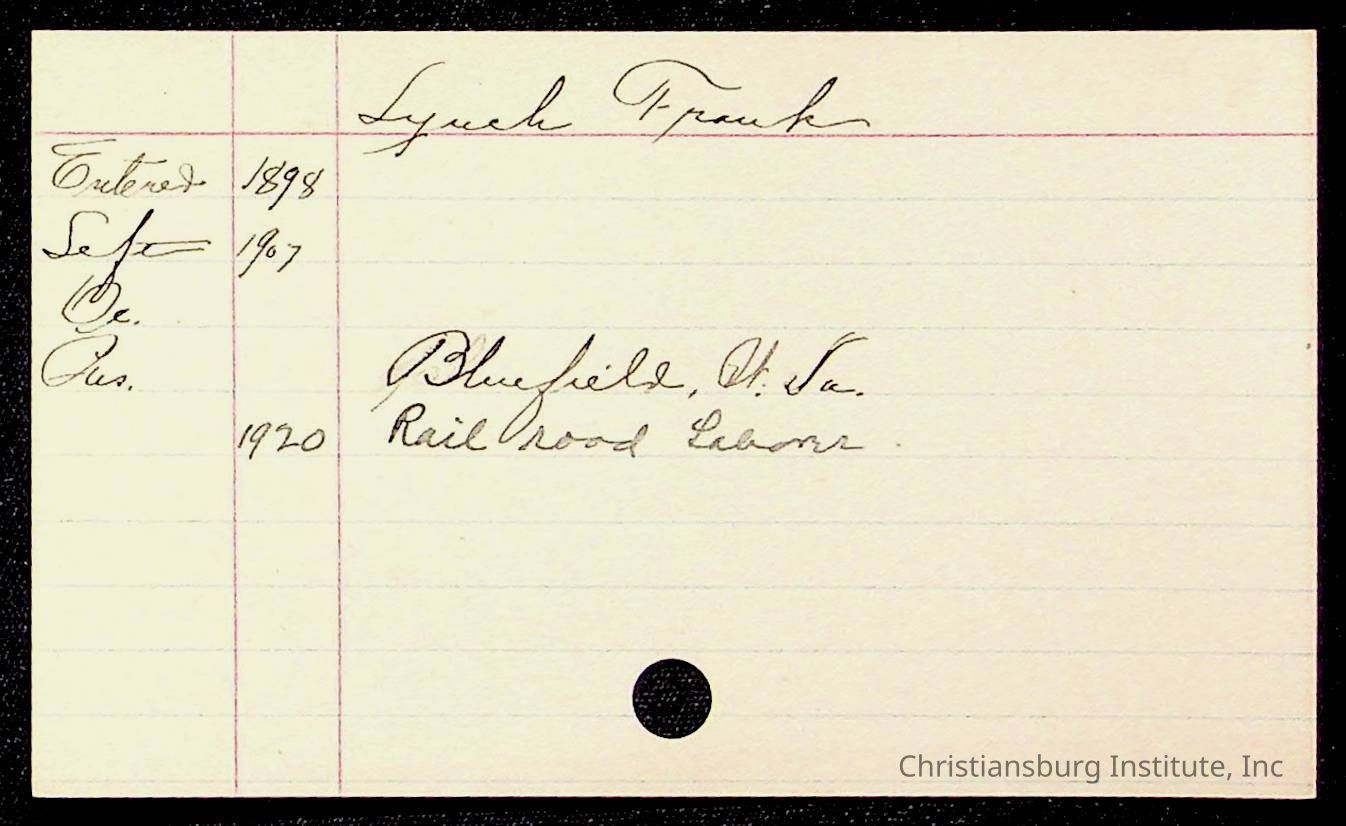 Lynch Frank
Entered 1898
Left 1907
Oc.
Pres.
Bluefield, W. Va.
1920 Rail road Laborer.
Christiansburg Institute, Inc